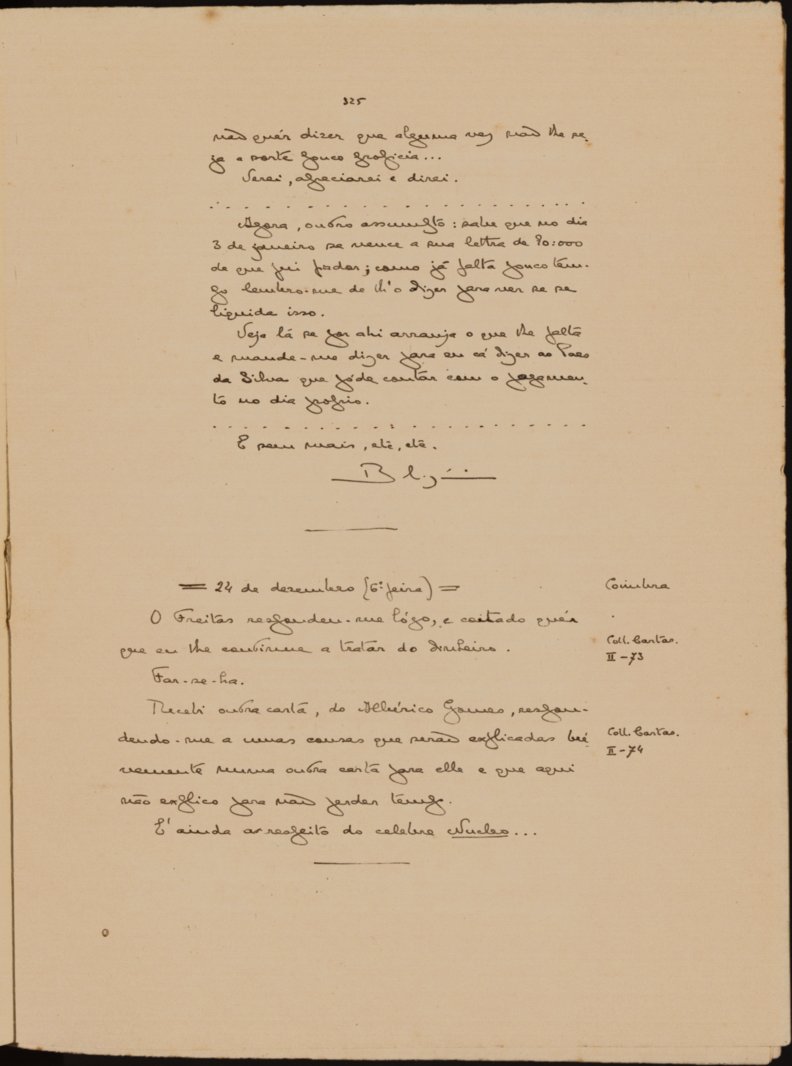 325
não quér dizer que alguma vez não lhe se-
ja a sorte pouco propicia...
Verei, apreciarei e direi.
Agora, outro assumpto: sabe que no dia
3 de janeiro se vence a sua lettra de 80:000
de que fui fiador; como já falta pouco tem-
po lembro-me de lh'o dizer para ver se se
liquida isso.
Veja lá se por ahi arranja o que lhe falta
e mande-me dizer para eu cá dizer ao Paes
da Silva que póde contar com o pagamen-
to no dia proprio.
E sem mais, etc, etc.
= 24 de dezembro (6ª feira) = Coimbra
O Freitas respondeu-me lógo, e coitado quér
que eu lhe continue a tratar do dinheiro. Coll. Cartas. II-73
Far-se-ha.
Recebi outra carta, do Albérico Gomes, respon-
dendo-me a umas cousas que serão explicadas bre- Coll. Cartas. II-74
vemente numa outra carta para elle e que aqui
não explico para não perder tempo.
E' ainda a respeito do celebre Nucleo...